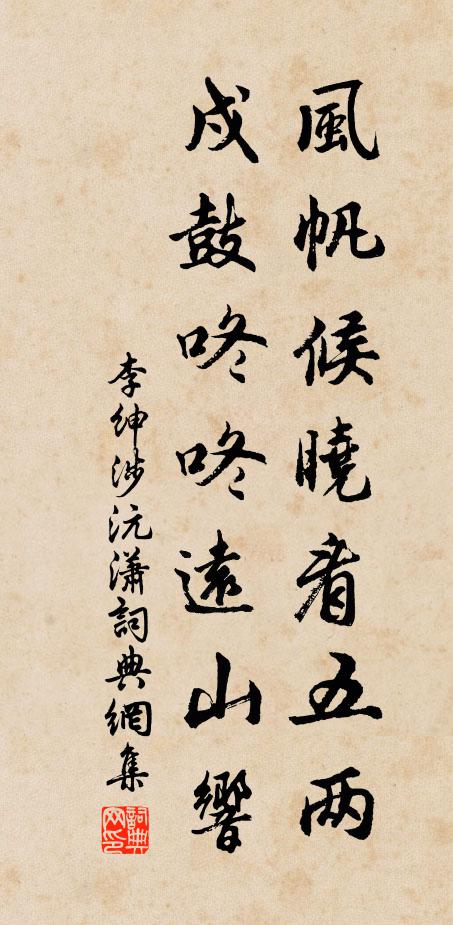 風帆候曉看五两
戍鼓咚咚遠山響
李紳涉沅瀟詞典網集
詞典网印